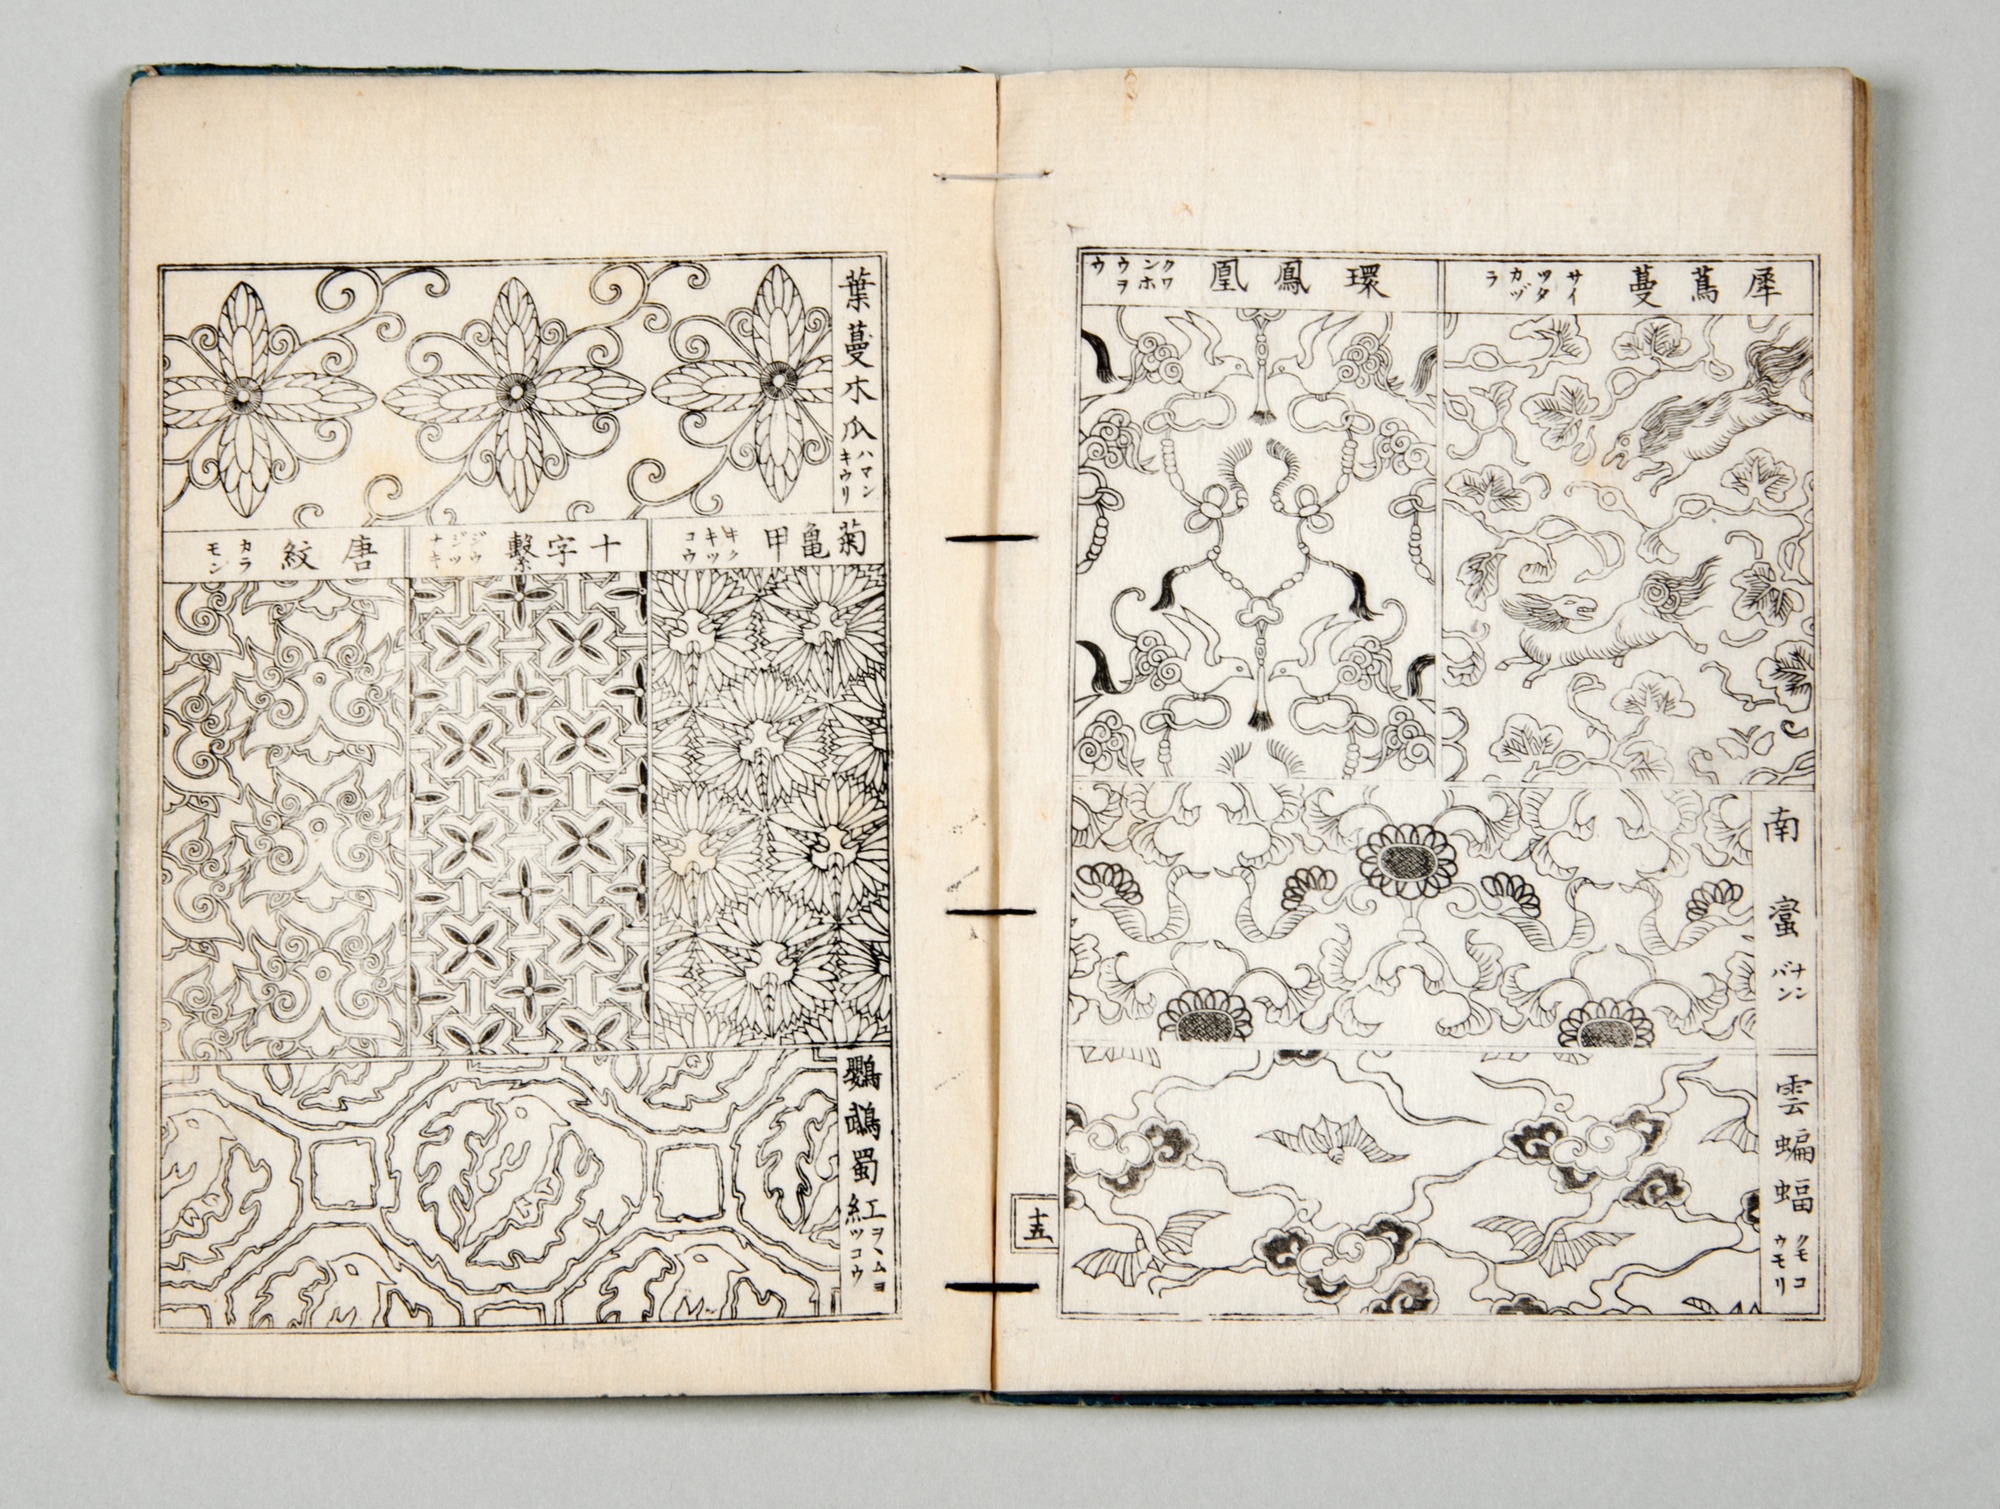 犀蔦蔓
サイ
ツタ
カヅ
ラ
環鳳凰
クワ
ンホ
ウヲ
ウ
南蛮
ナン
バン
雲蝙蝠
クモコ
ウモリ
十五
葉蔓木瓜
ハマン
キウリ
菊亀甲
キク
キツ
コウ
十字繋
ジウ
ジツ
ナキ
唐紋
カラ
モン
鸚鵡蜀紅
ヲヽムヨ
ツコウ